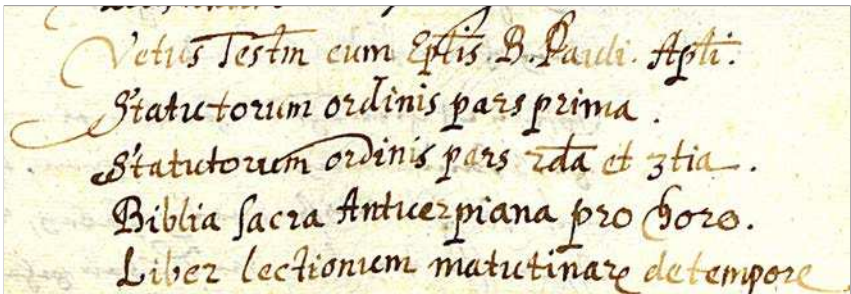 Vetus Testm cum Eptis B. Pauli. Apti.
Statutorum ordinis pars prima.
Statutorum ordinis pars 2da et 3tia.
Biblia sacra Antuerpiana pro choro.
Liber lectionum matutinarꝫ de tempore